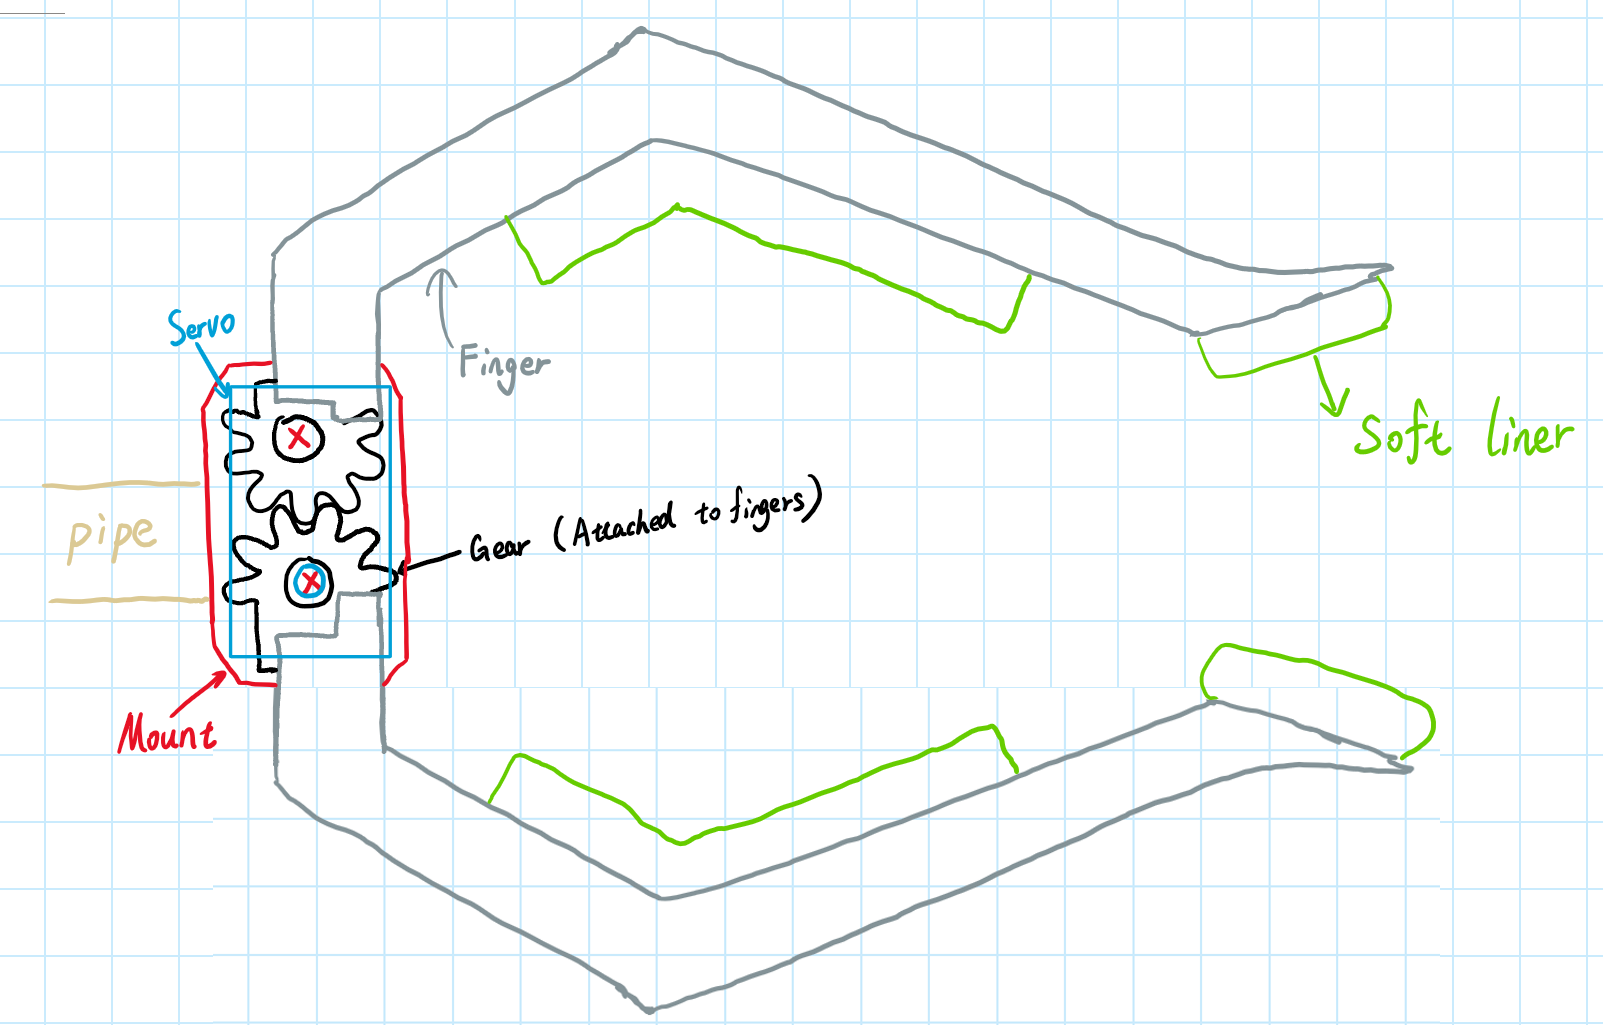 Servo
Finger
Soft liner
pipe
Gear (Attached to fingers)
Mount